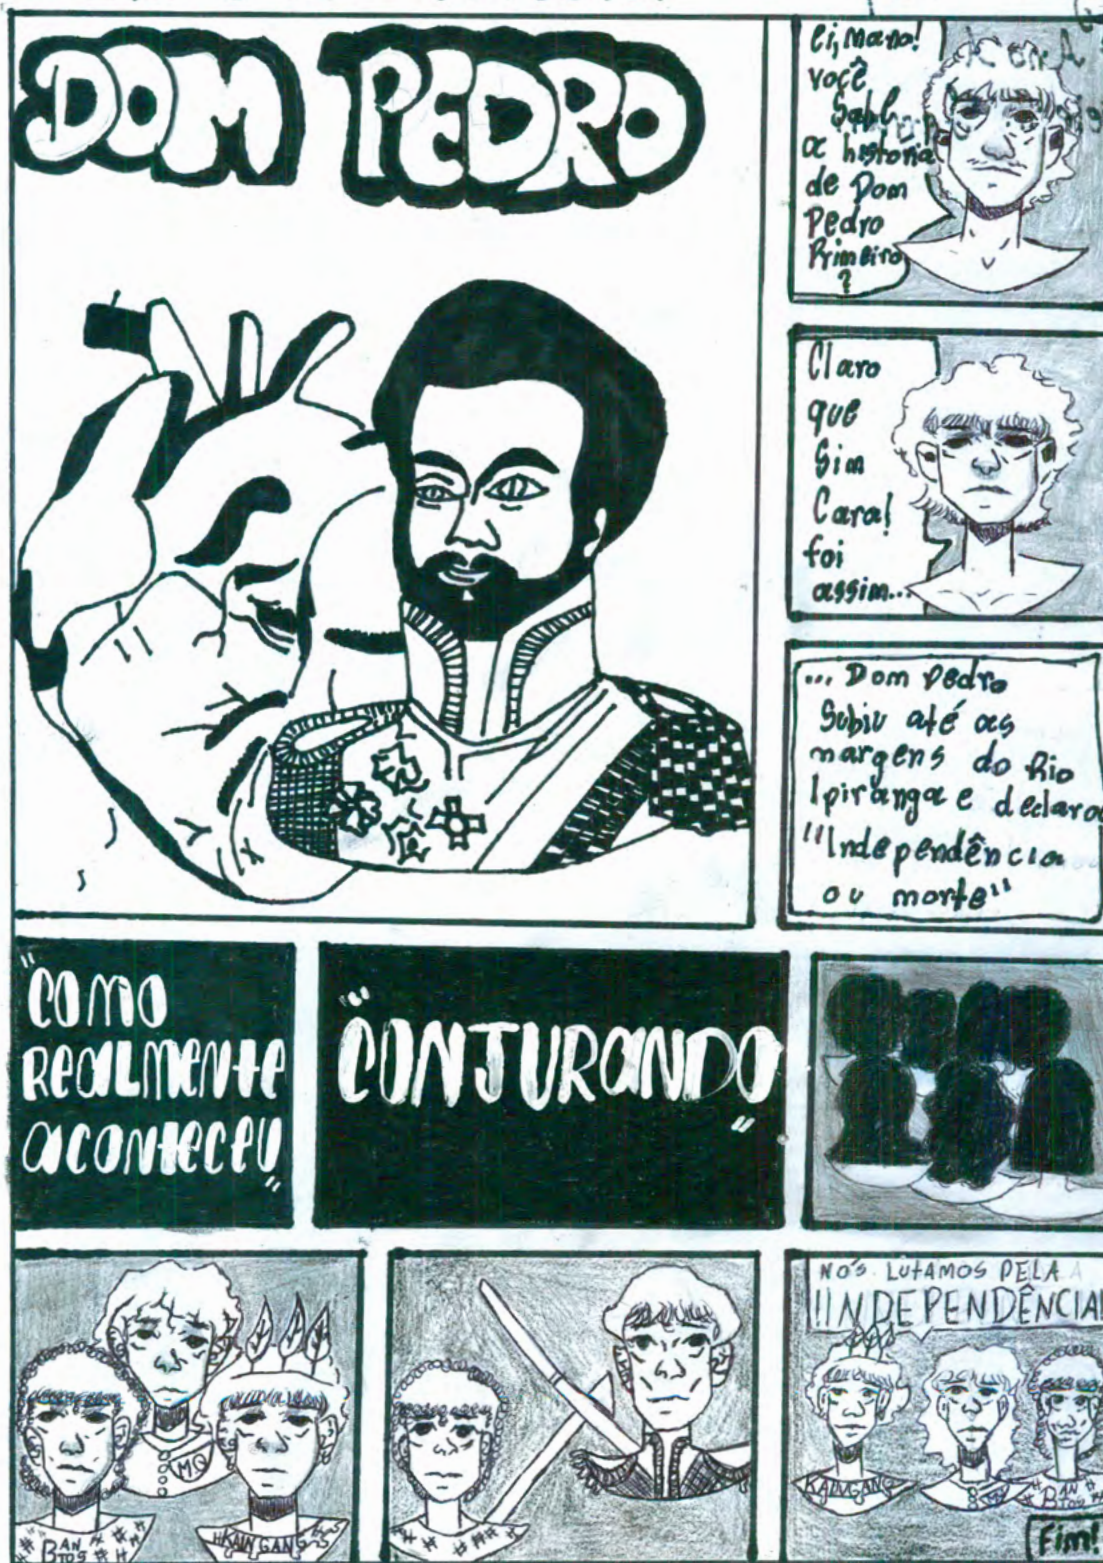 DOM PEDRO
ei, mano!
você
Sabe...
a historia
de Dom
Pedro
Primeiro
?
Claro
que
Sim
Cara!
foi
assim...
... Dom Pedro
Subiu até as
margens do Rio
Ipiranga e declarou
"Independência
ou morte"
"COMO
REALMENTE
ACONTECEU"
"CONJURANDO"
BAN
TOS
MG
KAINGANG
NOS LUTAMOS PELA
!INDEPENDÊNCIA!
KAINGANG
BAN
TOS
Fim!